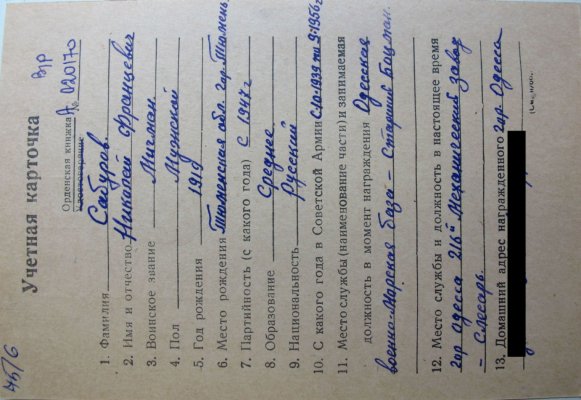 В1Р
Учетная карточка
Орденская книжка А
удостоверение № 020170
1. Фамилия Сабуров.
2. Имя и отчество Николай Францевич
3. Воинское звание Мичман.
4. Пол Мужской
5. Год рождения 1919
6. Место рождения Тюменская обл. гор. Тюмень
7. Партийность (с какого года) с 1947 г
8. Образование Среднее.
9. Национальность Русский
10. С какого года в Советской Армии с 1939 по 9.1956 г
11. Место службы (наименование части) и занимаемая
должность в момент награждения Одесская
военно-Морская база – Старший Боцман.
12. Место службы и должность в настоящее время
гор Одесса 216й Механический завод
– слесарь.
13. Домашний адрес награжденного гор. Одесса